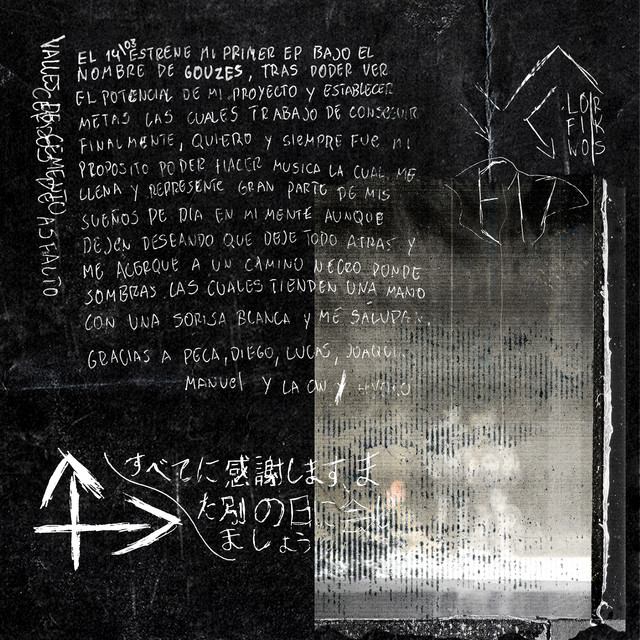 EL 14/03 ESTRENE MI PRIMER EP BAJO EL
NOMBRE DE GOUZES, TRAS PODER VER
EL POTENCIAL DE MI PROYECTO Y ESTABLECER
METAS LAS CUALES TRABAJO DE CONSEGUIR
FINALMENTE, QUIERO Y SIEMPRE FUE MI
PROPOSITO PODER HACER MUSICA LA CUAL ME
LLENA Y REPRESENTE GRAN PARTE DE MIS
SUEÑOS DE DIA EN MI MENTE AUNQUE
DEJEN DESEANDO QUE DEJE TODO ATRAS Y
ME ACERQUE A UN CAMINO NEGRO DONDE
SOMBRAS LAS CUALES TIENDEN UNA MANO
CON UNA SORISA BLANCA Y ME SALUDAN.
GRACIAS A PECA, DIEGO, LUCAS, JOAQUI
MANUEl Y LA
VALLES DE CEMENTO
ASFALTO
LOR
FIK
WOS
すべてに感謝します、ま
た別の日に会い
ましょう